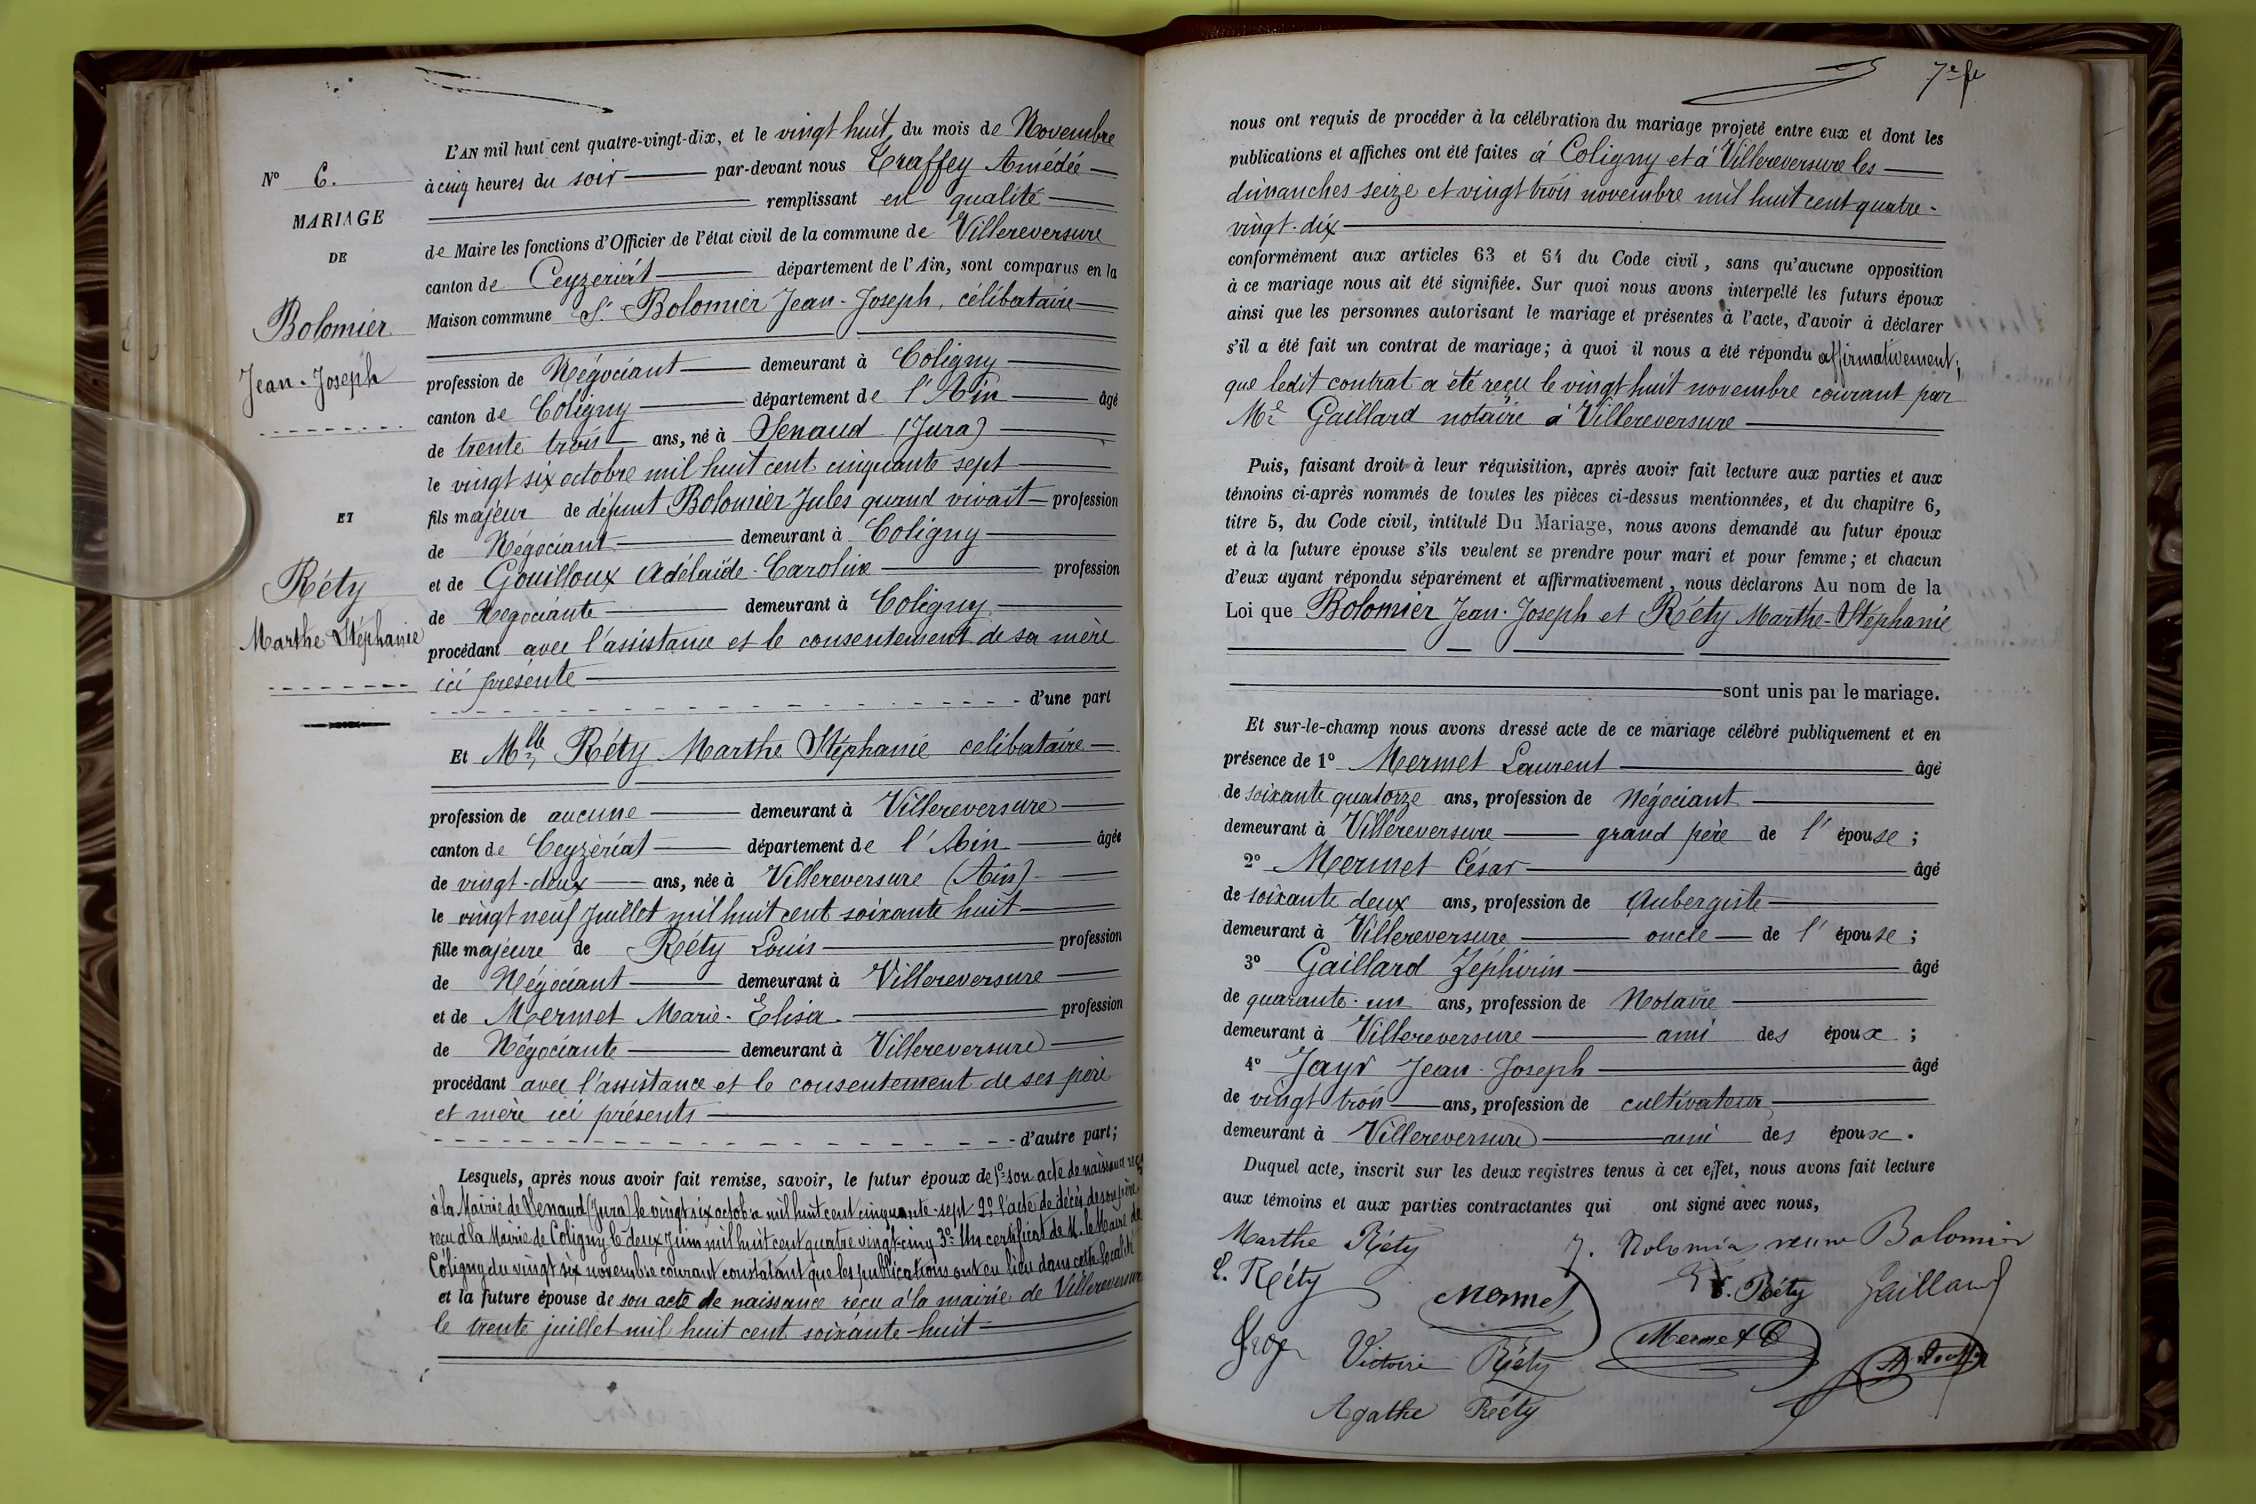 N° 6.
MARIAGE
DE
Bolomier
Jean-Joseph
ET
Réty
Marthe Stéphanie
L'AN mil huit cent quatre-vingt-dix, et le vingt huit, du mois de Novembre
à cinq heures du soir par-devant nous Traffey Amédée
remplissant en qualité
de Maire les fonctions d'Officier de l'état civil de la commune de Villereversure
canton de Ceyzeriat département de l'Ain, sont comparus en la
Maison commune Sr Bolomier Jean-Joseph, célibataire
profession de Négociant demeurant à Coligny
canton de Coligny département de l'Ain âgé
de trente trois ans, né à Senaud (Jura)
le vingt six octobre mil huit cent cinquante sept
fils majeur de défunt Bolomier Jules quand vivait profession
de Négociant demeurant à Coligny
et de Gouilloux Adélaïde-Caroline profession
de Négociante demeurant à Coligny
procédant avec l'assistance et le consentement de sa mère
ici présente
d'une part
Et Mlle Réty Marthe Stéphanie celibataire
profession de aucune demeurant à Villereversure
canton de Ceyzériat département de l'Ain âgée
de vingt-deux ans, née à Villereversure (Ain)
le vingt neuf Juillet mil huit cent soixante huit
fille majeure de Réty Louis profession
de Négociant demeurant à Villereversure
et de Mermet Marie-Elisa profession
de Négociante demeurant à Villereversure
procédant avec l'assistance et le consentement de ses père
et mère ici présents
d'autre part;
Lesquels, après nous avoir fait remise, savoir, le futur époux de 1° son acte de naissance reçu
à la Mairie de Senaud (Jura) le vingt six octobre mil huit cent cinquante-sept 2° l'acte de décès de son père
reçu à la Mairie de Coligny le deux juin mil huit cent quatre vingt-cinq 3° Un certificat de M. le Maire de
Coligny du vingt six novembre courant constatant que les publications ont eu lieu dans cette localité
et la future épouse de son acte de naissance reçu à la mairie de Villereversure
le trente juillet mil huit cent soixante-huit
7e f
nous ont requis de procéder à la célébration du mariage projeté entre eux et dont les
publications et affiches ont été faites à Coligny et à Villereversure les
dimanches seize et vingt trois novembre mil huit cent quatre-
vingt-dix
conformément aux articles 63 et 64 du Code civil, sans qu'aucune opposition
à ce mariage nous ait été signifiée. Sur quoi nous avons interpellé les futurs époux
ainsi que les personnes autorisant le mariage et présentes à l'acte, d'avoir à déclarer
s'il a été fait un contrat de mariage; à quoi il nous a été répondu affirmativement;
que ledit contrat a été reçu le vingt huit novembre courant par
Me Gaillard notaire à Villereversure
Puis, faisant droit à leur réquisition, après avoir fait lecture aux parties et aux
témoins ci-après nommés de toutes les pièces ci-dessus mentionnées, et du chapitre 6,
titre 5, du Code civil, intitulé Du Mariage, nous avons demandé au futur époux
et à la future épouse s'ils veulent se prendre pour mari et pour femme; et chacun
d'eux ayant répondu séparément et affirmativement, nous déclarons Au nom de la
Loi que Bolomier Jean-Joseph et Réty Marthe-Stéphanie
sont unis par le mariage.
Et sur-le-champ nous avons dressé acte de ce mariage célébré publiquement et en
présence de 1° Mermet Laurent âgé
de soixante quatorze ans, profession de Négociant
demeurant à Villereversure grand père de l'épouse;
2° Mermet César âgé
de soixante deux ans, profession de Aubergiste
demeurant à Villereversure oncle de l'épouse;
3° Gaillard Zéphirin âgé
de quarante-un ans, profession de Notaire
demeurant à Villereversure ami des époux;
4° Jayr Jean-Joseph âgé
de vingt trois ans, profession de cultivateur
demeurant à Villereversure ami des époux.
Duquel acte, inscrit sur les deux registres tenus à cet effet, nous avons fait lecture
aux témoins et aux parties contractantes qui ont signé avec nous,
Marthe Réty J. Bolomier veuve Bolomier
L. Réty Mermet Réty Gaillard
Victoire Réty Mermet C
Agathe Réty